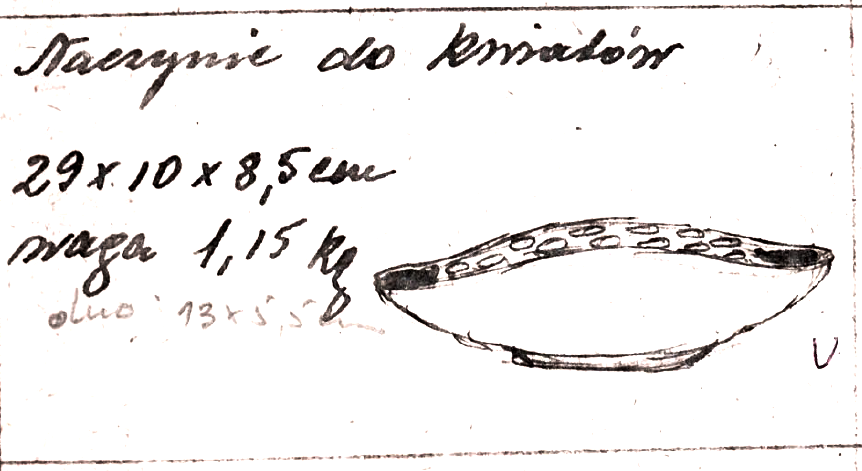 Naczynie do kwiatów
29 x 10 x 8,5 cm
waga 1,15 kg
dno: 13 x 5,5 cm
V